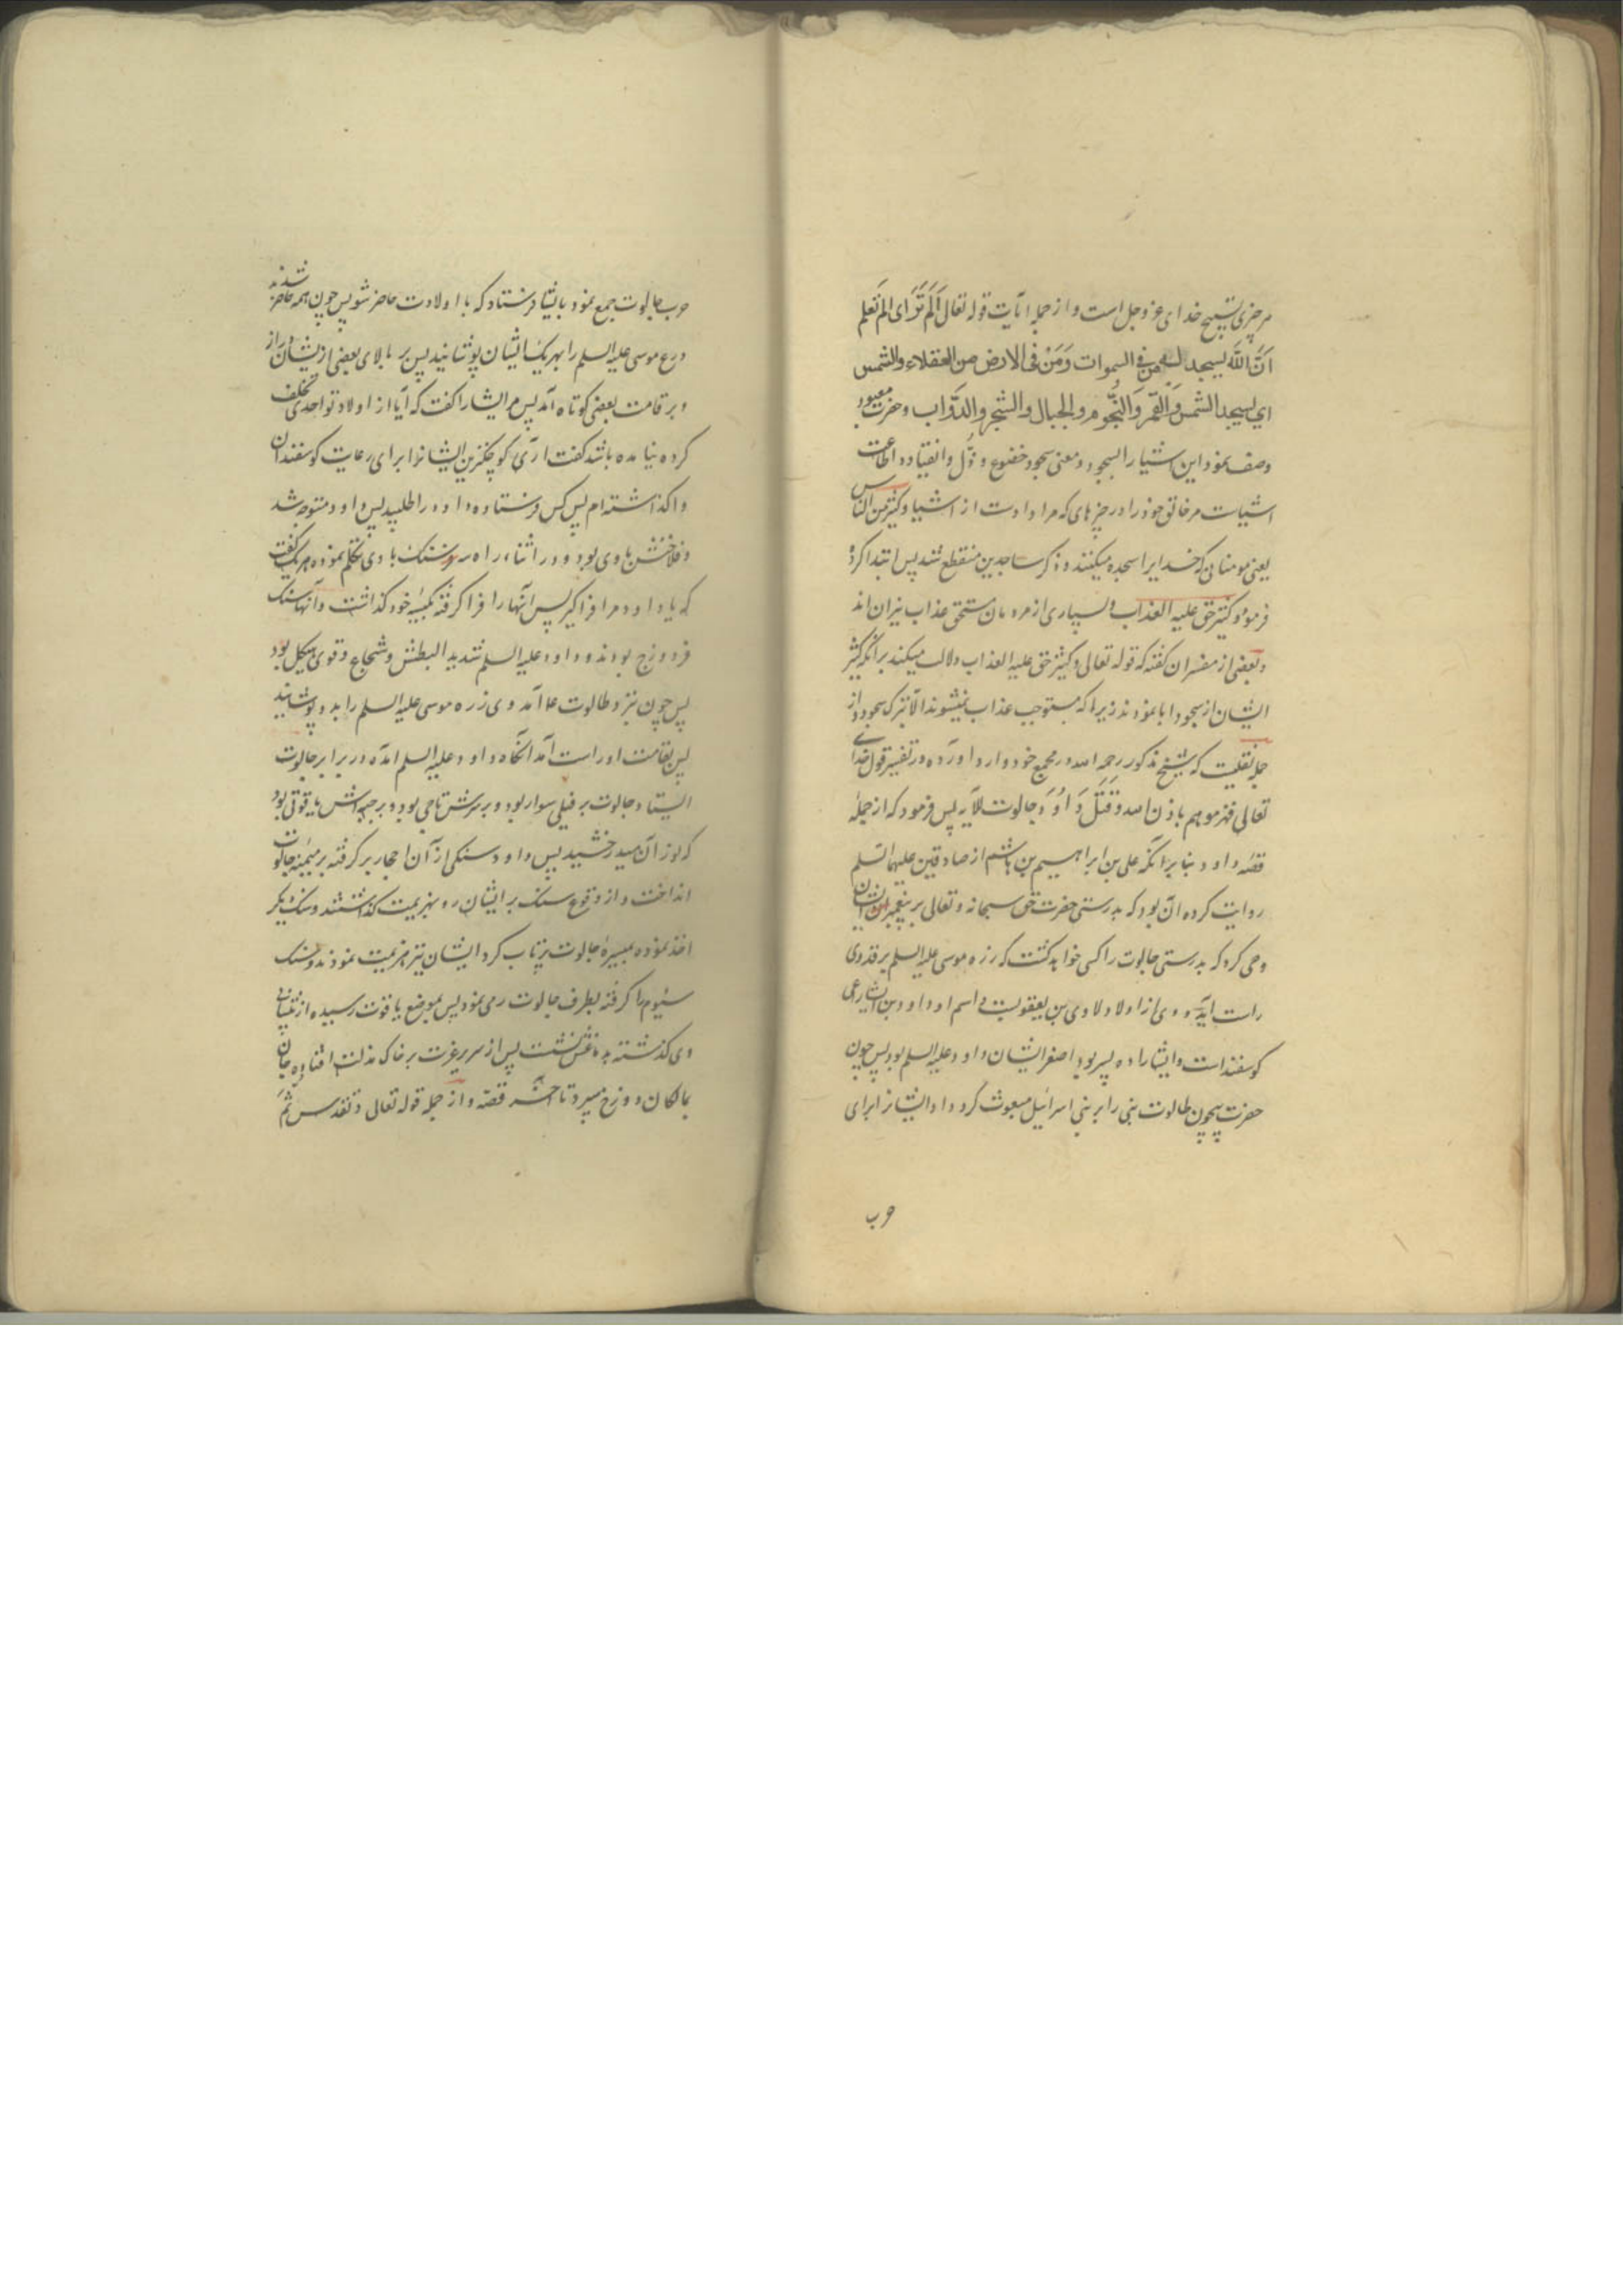 هر چیزی تسبیح خدای عز و جل است و از جمله آیات قوله تعالی اَلَم تَرَ ای الم تعلم
اَنَّ اللّه یسجد له من فی السموات وَمَنْ فی الارض من العقلاء والشمس
ای یسجد الشمس وَالقَمَر وَالنُّجُوم والجبال والشجر والدَّوَاب وحضرت معبود
وصف نمود این اشیا را بسجود و معنی سجود خضوع و ذُل و انقیاد و اطاعت
اشیاست مر خالق خود را در چیزهای که مراد اوست از اشیا وکثیر من الناس
یعنی مومنانی که خدایرا سجده میکنند و ذکر ساجدین منقطع شد پس ابتدا کرد
فرمود وکثیر حق علیه العذاب و بسیاری از مردمان مستحق عذاب نیران اند
و بعضی از مفسران گفته که قوله تعالی وکثیر حق علیه العذاب دلالت میکند بر آنکه کثیر
ایشان از سجود ابا نمودند زیرا که مستوجب عذاب نمیشوند الا بترک سجود و از
جمله نقلیست که شیخ مذکور رحمه الله در مجمع خود وارد آورده در تفسیر قول خدای
تعالی فهزموهم باذن الله وقَتَلَ دَاوُدَ جالوت الآیه پس فرمود که از جمله
قصه داود بنا بر آنکه علی بن ابراهیم بن هاشم از صادقین علیهما السلم
روایت کرده آن بود که بدرستی حضرت حق سبحانه و تعالی بر پیغمبر ایشان
وحی کرد که بدرستی جالوت را کسی خواهد کشت که زره موسی علیه السلم بر قد وی
راست آید و وی از اولاد لاوی بن یعقوبست و اسم او داود بن ایشا راعی
کوسفنداست وایشا را ده پسر بود اصغر ایشان داود علیه السلم بود پس چون
حضرت بیچون طالوت بنی را بر بنی اسرائیل مبعوث کرد و او ایشانرا برای
حرب
حرب جالوت جمع نمود بایشا فرستاد که با اولادت حاضر شو پس چون همه حاضر شدند
درع موسی علیه السلم را بهر یک ایشان پوشانید پس بر بالای بعضی از ایشان دراز
و بر قامت بعضی کوتاه آمد پس مر ایشا را کفت که آیا از اولاد تو احدی تخلف
کرده نیامده باشد کفت آری کوچکترین ایشانرا برای رعایت کوسفندان
واکذاشته ام پس کس فرستاده داود را طلبید پس داود متوجه شد
و فلاخنش با وی بود و در اثناء راه سه سنک با وی تکلم نموده هر یک کفت
که یا داود مرا فراکیر پس آنها را فرا کرفته بکیسه خود کذاشت و آنها سنک
فرد و زوج بودند و داود علیه السلم شدید البطش وشجاع و قوی هیکل بود
پس چون نزد طالوت علا آمد وی زره موسی علیه السلم را بدو پوشانید
پس بقامت او راست آمد آنکاه داود علیه السلم آمده در برابر جالوت
ایستاد و جالوت بر فیلی سوار بود و بر سرش تاجی بود و بر جبهه اش یاقوتی بود
که نور آن میدرخشید پس داود سنکی از آن احجار بر کرفته بر میمنه جالوت
انداخت و از وقوع سنک بر ایشان رو بهزیمت کذاشتند و سنک دیکر
اخذ نموده بمیسره جالوت پرتاب کرد ایشان نیز هزیمت نمودند و سنک
سیوم را کرفته بطرف جالوت رمی نمود پس بموضع یاقوت رسیده از پیشانی
وی کذشته بدماغش نشست پس از سریر عزت بر خاک مذلت افتاده جان
بمالکان دوزخ سپرد تا آخر قصه و از جمله قوله تعالی و تقدس ثُمَّ